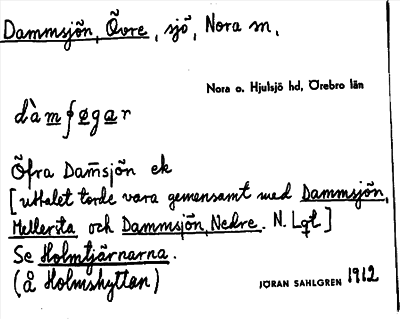 Dammsjön, Övre, sjö, Nora sn,
Nora o. Hjulsjö hd, Örebro län
dàmʃøgar
Öfra Dam̄sjön ek
[uttalet torde vara gemensamt med Dammsjön,
Mellersta och Dammsjön, Nedre. N. Lgt]
Se Holmtjärnarna.
(å Holmshyttan)
JÖRAN SAHLGREN 1912